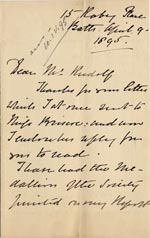 15 Raby Place
Bath. April 9
1895.
Dear Mr Rudolf
Thanks for your letter
which I at once sent to
Miss Briscoe: and now
I enclose her reply for
you to read.
I have had the Me-
dallion of the Society
printed on my Report